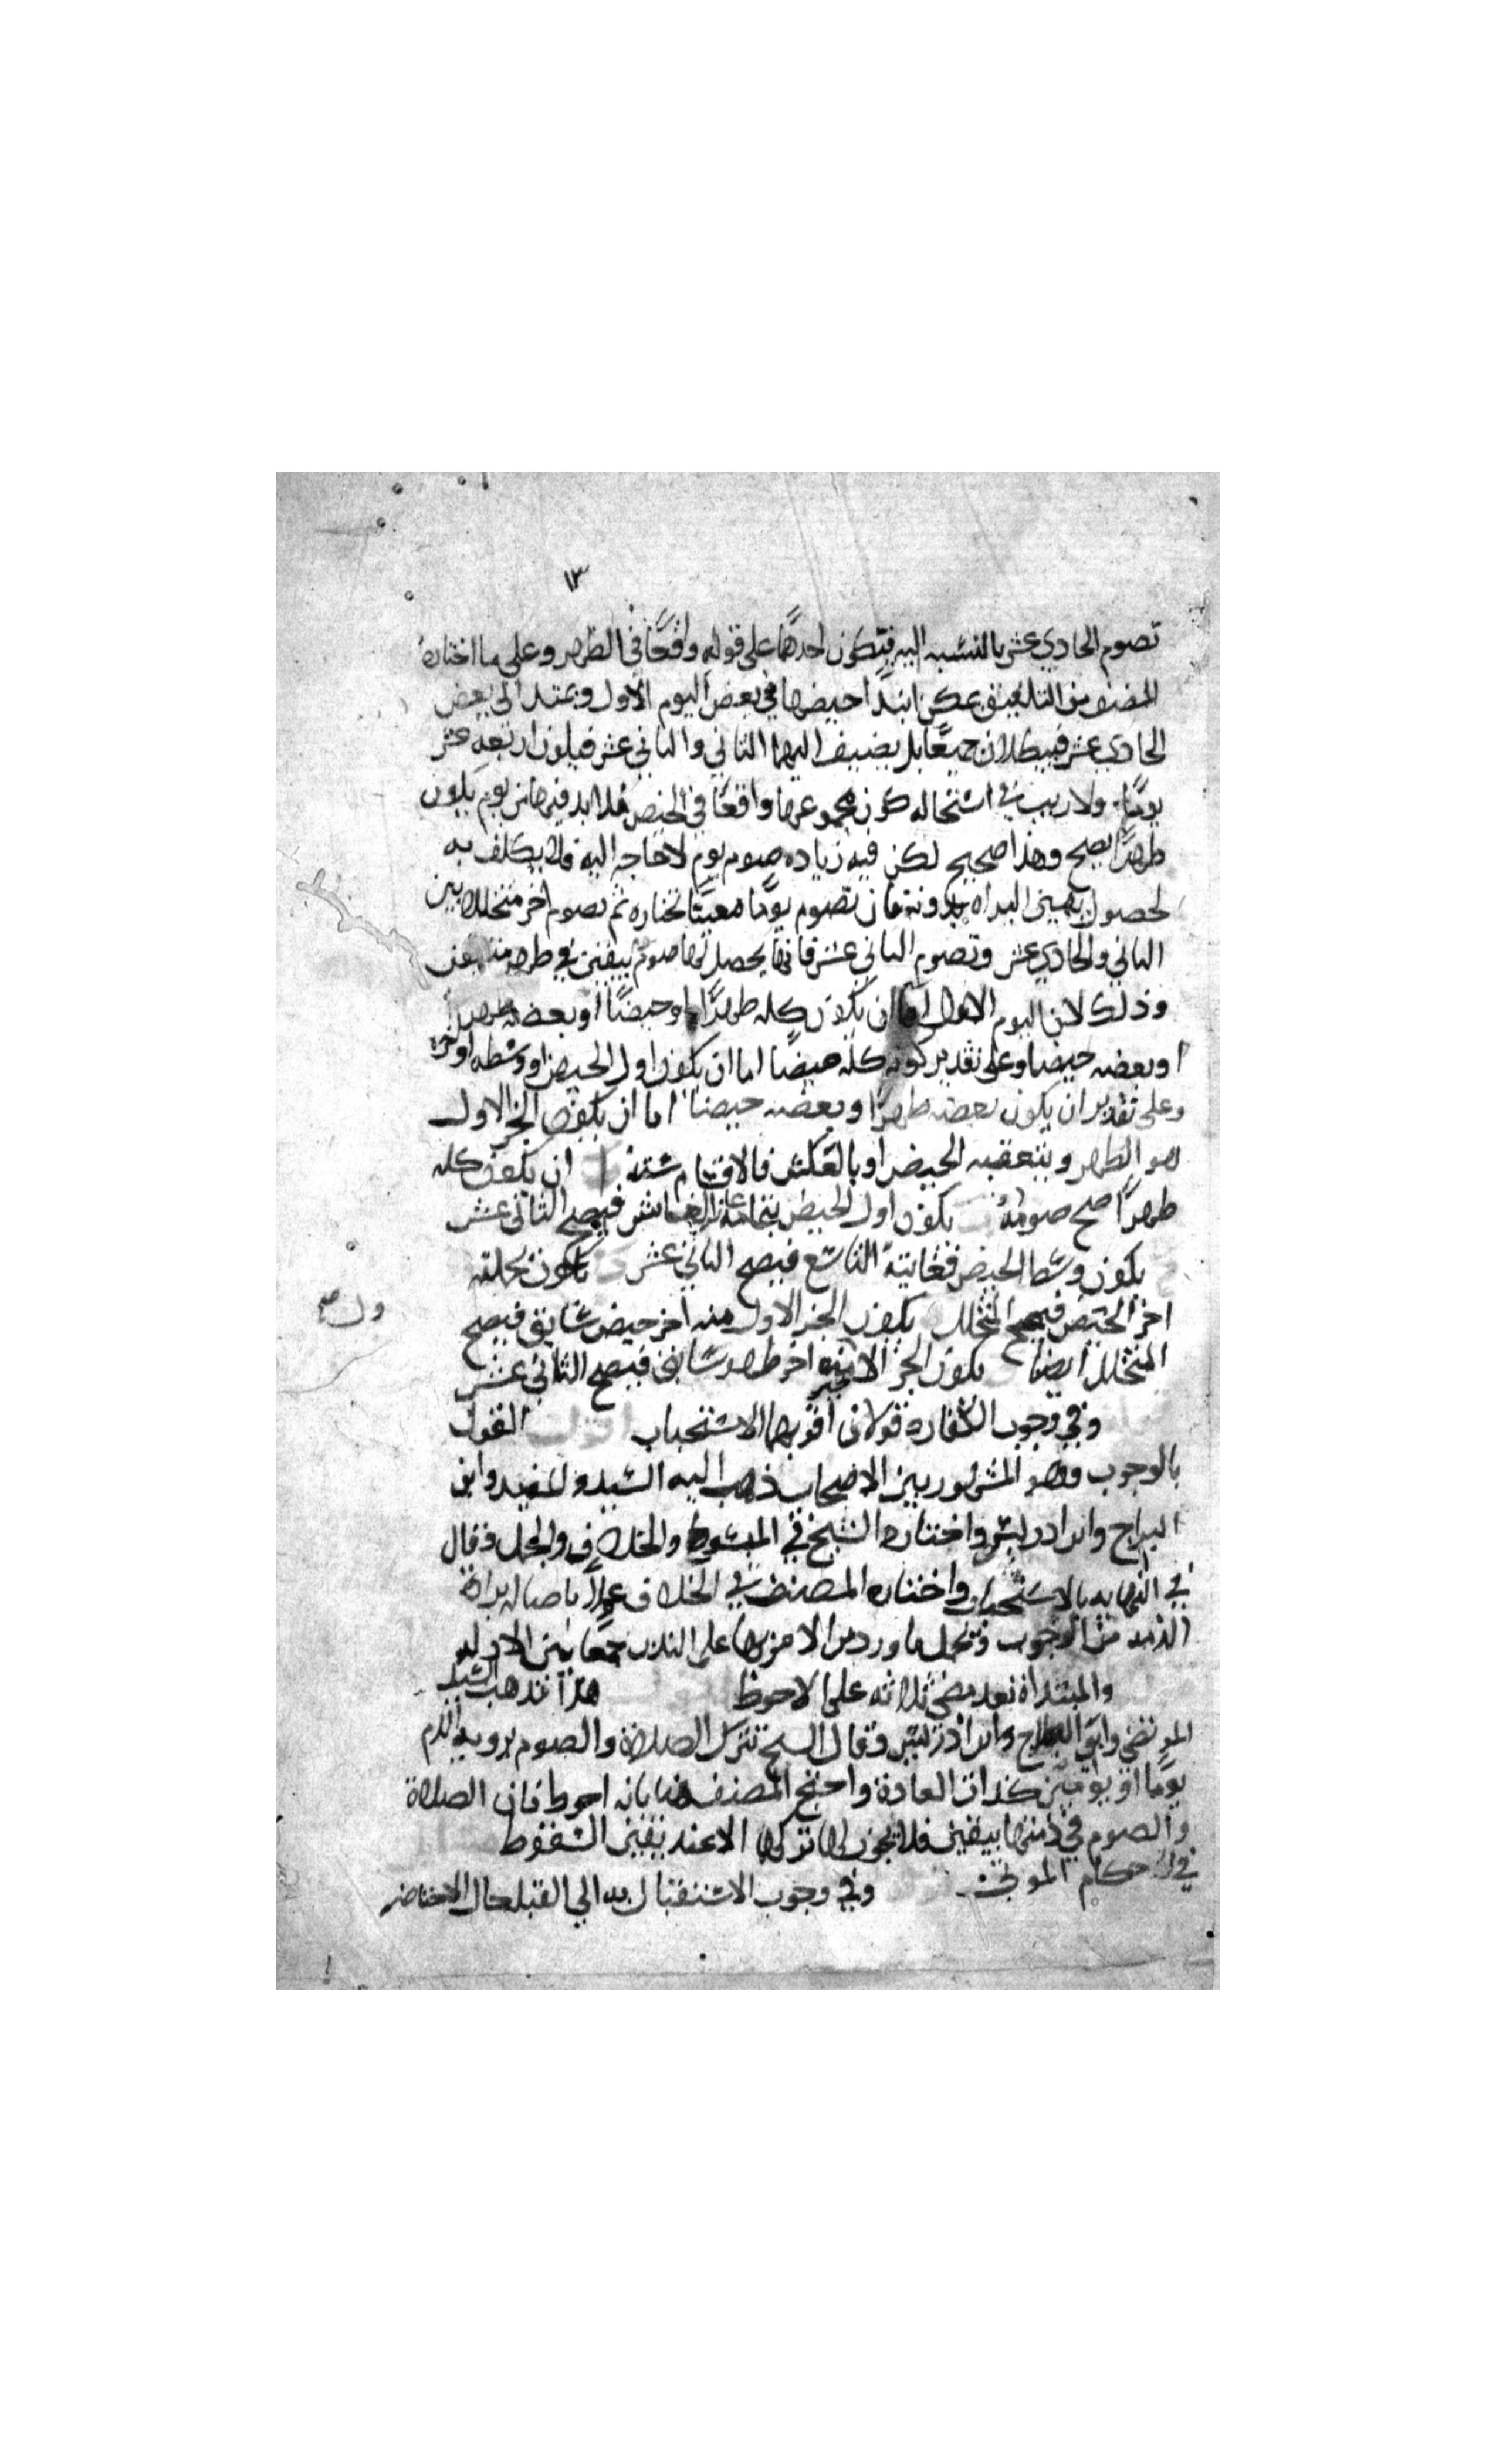 ١٣
تصوم الحادي عشر بالنسبه اليه فتكون احدهما على قوله واقعًا في الطهر وعلى ما اختاره
المصنف من التلفيق يمكن ابتدا حيضها في بعض اليوم الاول ويمتد الى بعض
الحادي عشر فيبطلان جميعًا بل يضيف اليهما الثاني والثاني عشر فيكون اربعه عشر
يومًا ولا ريب في استحاله كون مجموعها واقعًا في الحيض فلا بد فيها من يوم يكون
طهرًا يصح وهذا صحيح لكن فيه زياده صوم يوم لا حاجه اليه ولا يكلف به
لحصول يقين البراه بدونه فان تصوم يومًا معينًا تختاره ثم تصوم اخر متخللا بين
الثاني والحادي عشر وتصوم الثاني عشر فانه يحصل لها صوم بيقين في طهر
وذلك لان اليوم الاول اما ان يكون كله طهرًا او حيضًا او بعضه طهرا
وبعضه حيضا وعلى تقدير كونه كله حيضًا اما ان يكون اول الحيض او وسطه او اخره
وعلى تقدير ان يكون بعضه طهرًا وبعضه حيضا اما ان يكون الجز الاول
هو الطهر ويتعقبه الحيض او بالعكس فالاقسام سته ا ان يكون كله
طهرًا صح صومه يكون اول الحيض فيصح الثاني عشر
يكون وسط الحيض فغايته التاسع فيصح الثاني عشر يكون بجملته
اخر الحيض فيصح المتخلل يكون الجز الاول منه اخر حيض سابق فيصح
المتخلل ايضا يكون الجز الا اخر طهر سابق فيصح الثاني عشر
وفي وجوب الكفاره قولان اقربهما الاستحباب اقول القول
بالوجوب وهو المشهور بين الاصحاب ذهب اليه السيد والمفيد وابن
البراج وابن ادريس واختاره الشيخ في المبسوط والخلاف والجمل وقال
في النهايه بالاستحباب واختاره المصنف في الخلاف عملًا باصاله براة
الذمه من الوجوب وتحمل ما ورد من الامر بها على الندب جمعًا بين الادله
والمبتداة بعد مضي ثلاثه على الاحوط هذا مذهب السيد
المرتضي وابن البراج وابن ادريس وقال الشيخ تترك الصلاة والصوم برويه الدم
يومًا او يومين كذات العادة واحتج المصنف هنا بانه احوط فان الصلاة
والصوم في ذمتها بيقين فلا يجوز لها تركها الا عند يقين السقوط
في احكام الموتى وفي وجوب الاستقبال به الي القبله حال الاحتضار